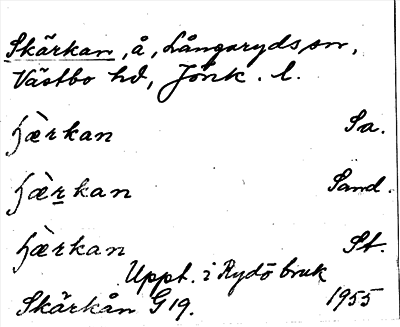 Skärkan, å, Långaryds sn,
Västbo hd, Jönk. l.
ɧæ̀rkan Sa.
ɧæ̀rkan Sand.
ɧæ̀rkan St.
Uppt. i Rydö bruk
Skärkån G 19. 1955